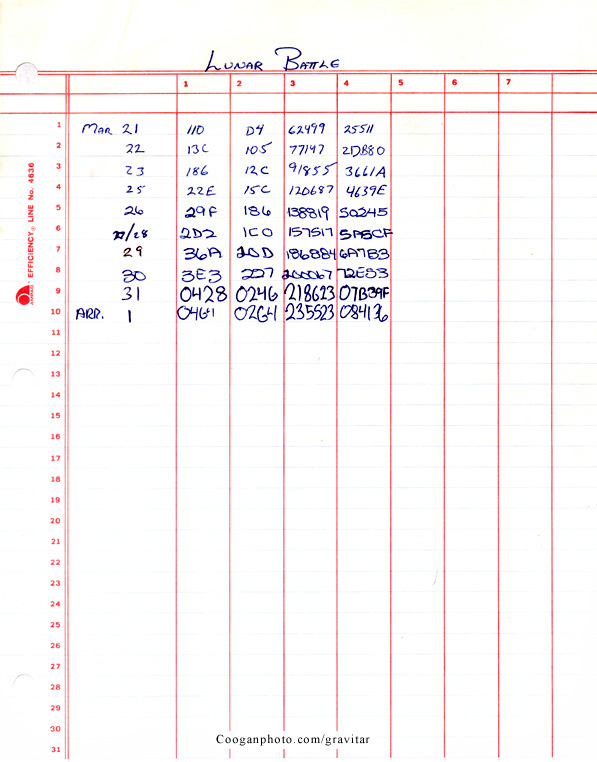 LUNAR BATTLE
1 2 3 4 5 6 7
1 MAR 21 110 D4 62499 25511
2 22 13C 105 77147 2DB80
3 23 186 12C 91855 3661A
4 25 22E 15C 120687 4639E
5 26 29F 186 138819 50245
6 27/28 2D2 1C0 157517 5A5CF
7 29 36A 20D 186884 6A7B3
8 30 3E3 227 200067 72E53
9 31 0428 0246 218623 07B39F
10 APR. 1 0464 0264 235523 084136
11
12
13
14
15
16
17
18
19
20
21
22
23
24
25
26
27
28
29
30
31
AMPAD EFFICIENCY® LINE No. 4636
Cooganphoto.com/gravitar